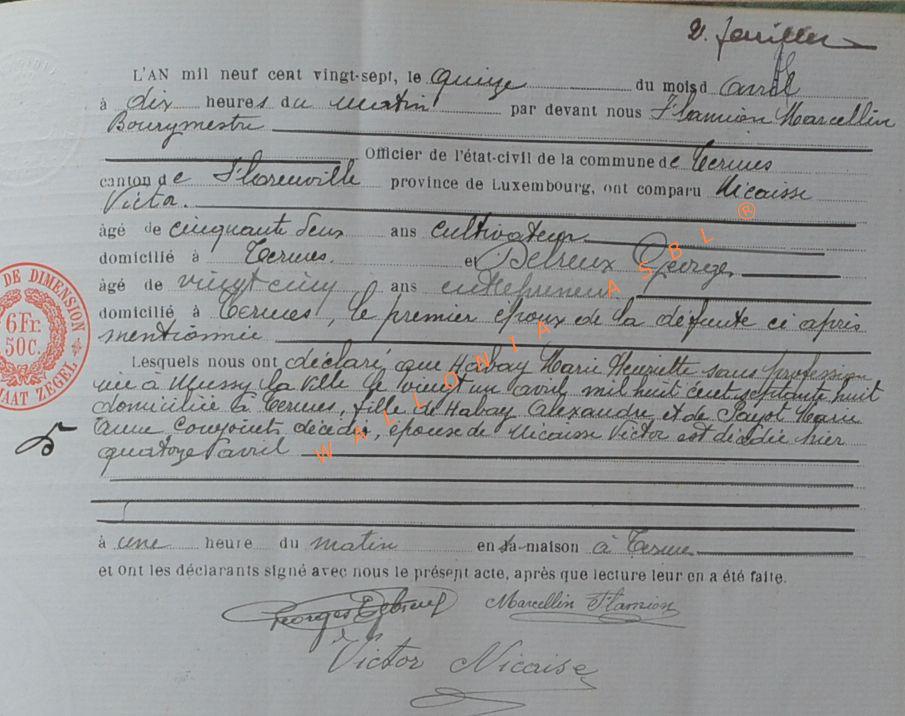 2. feuillet
L'AN mil neuf cent vingt-sept, le quinze du mois d avril
à dix heures du matin par devant nous Flamion Marcellin
Bourgmestre
Officier de l'état-civil de la commune de Termes
canton de Florenville province de Luxembourg, ont comparu Nicaise
Victor.
âgé de cinquante deux ans cultivateur
domicilié à Termes. et Debreux Georges
âgé de vingt cinq ans entrepreneur
domicilié à Termes, le premier époux de la défunte ci après
mentionnée
Lesquels nous ont déclaré que Habay Marie Henriette sans profession
née à Mussy la Ville le vingt un avril mil huit cent septante huit
domiciliée à Termes, fille de Habay Alexandre et de Marie
Anne conjoints décédés, épouse de Nicaise Victor est décédée hier
quatorze avril
à une heure du matin en sa maison à Termes
et ont les déclarants signé avec nous le présent acte, après que lecture leur en a été faite.
Georges Debreux Marcellin Flamion
Victor Nicaise
DE DIMENSION
6Fr.
50c.
MAAT ZEGEL
5
WALLONIA ASBL ®